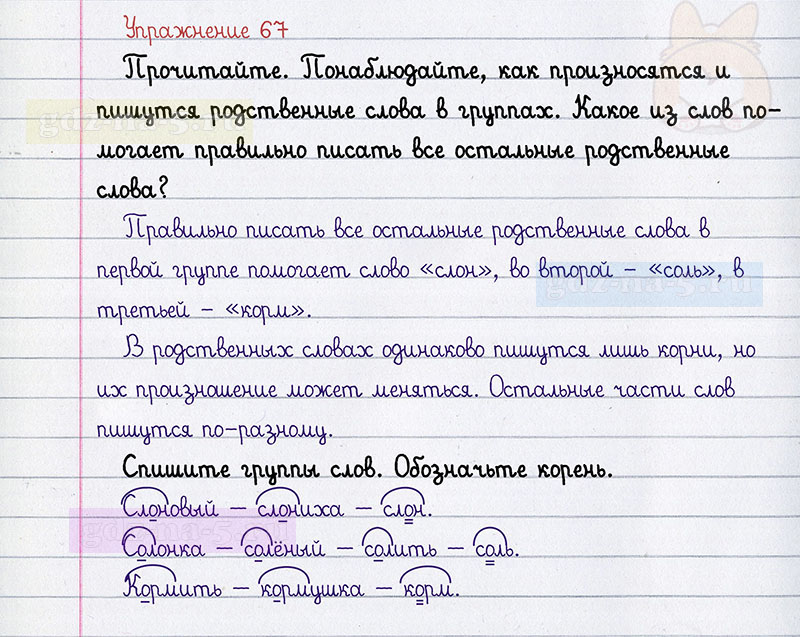 Упражнение 67
Прочитайте. Понаблюдайте, как произносятся и
пишутся родственные слова в группах. Какое из слов по-
могает правильно писать все остальные родственные
слова?
Правильно писать все остальные родственные слова в
первой группе помогает слово «слон», во второй – «соль», в
третьей – «корм».
В родственных словах одинаково пишутся лишь корни, но
их произношение может меняться. Остальные части слов
пишутся по-разному.
Спишите группы слов. Обозначьте корень.
Слоновый – слониха – слон.
Солонка – солёный – солить – соль.
Кормить – кормушка – корм.
gdz-na-5.ru
gdz-na-5.ru
gdz-na-5.ru